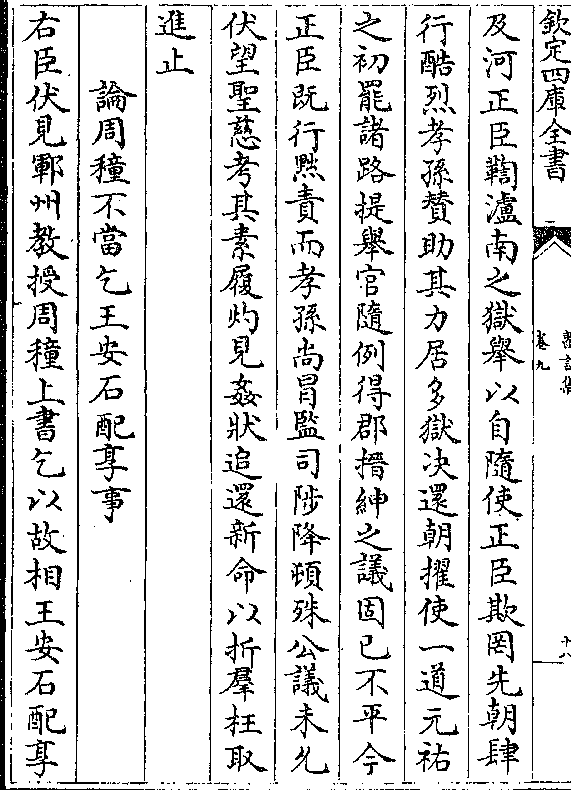 欽定四庫全書
盡言集
卷九
十八
及河正臣鞫瀘南之獄舉以自隨使正臣欺罔先朝肆
行酷烈孝孫贊助其力居多獄決還朝擢使一道元祐
之初罷諸路提舉官隨例得郡搢紳之議固已不平今
正臣既行黜責而孝孫尚冒監司陟降頓殊公議未允
伏望聖慈考其素履灼見姦狀追還新命以折羣枉取
進止
論周穜不當乞王安石配享事
右臣伏見鄆州教授周穜上書乞以故相王安石配享